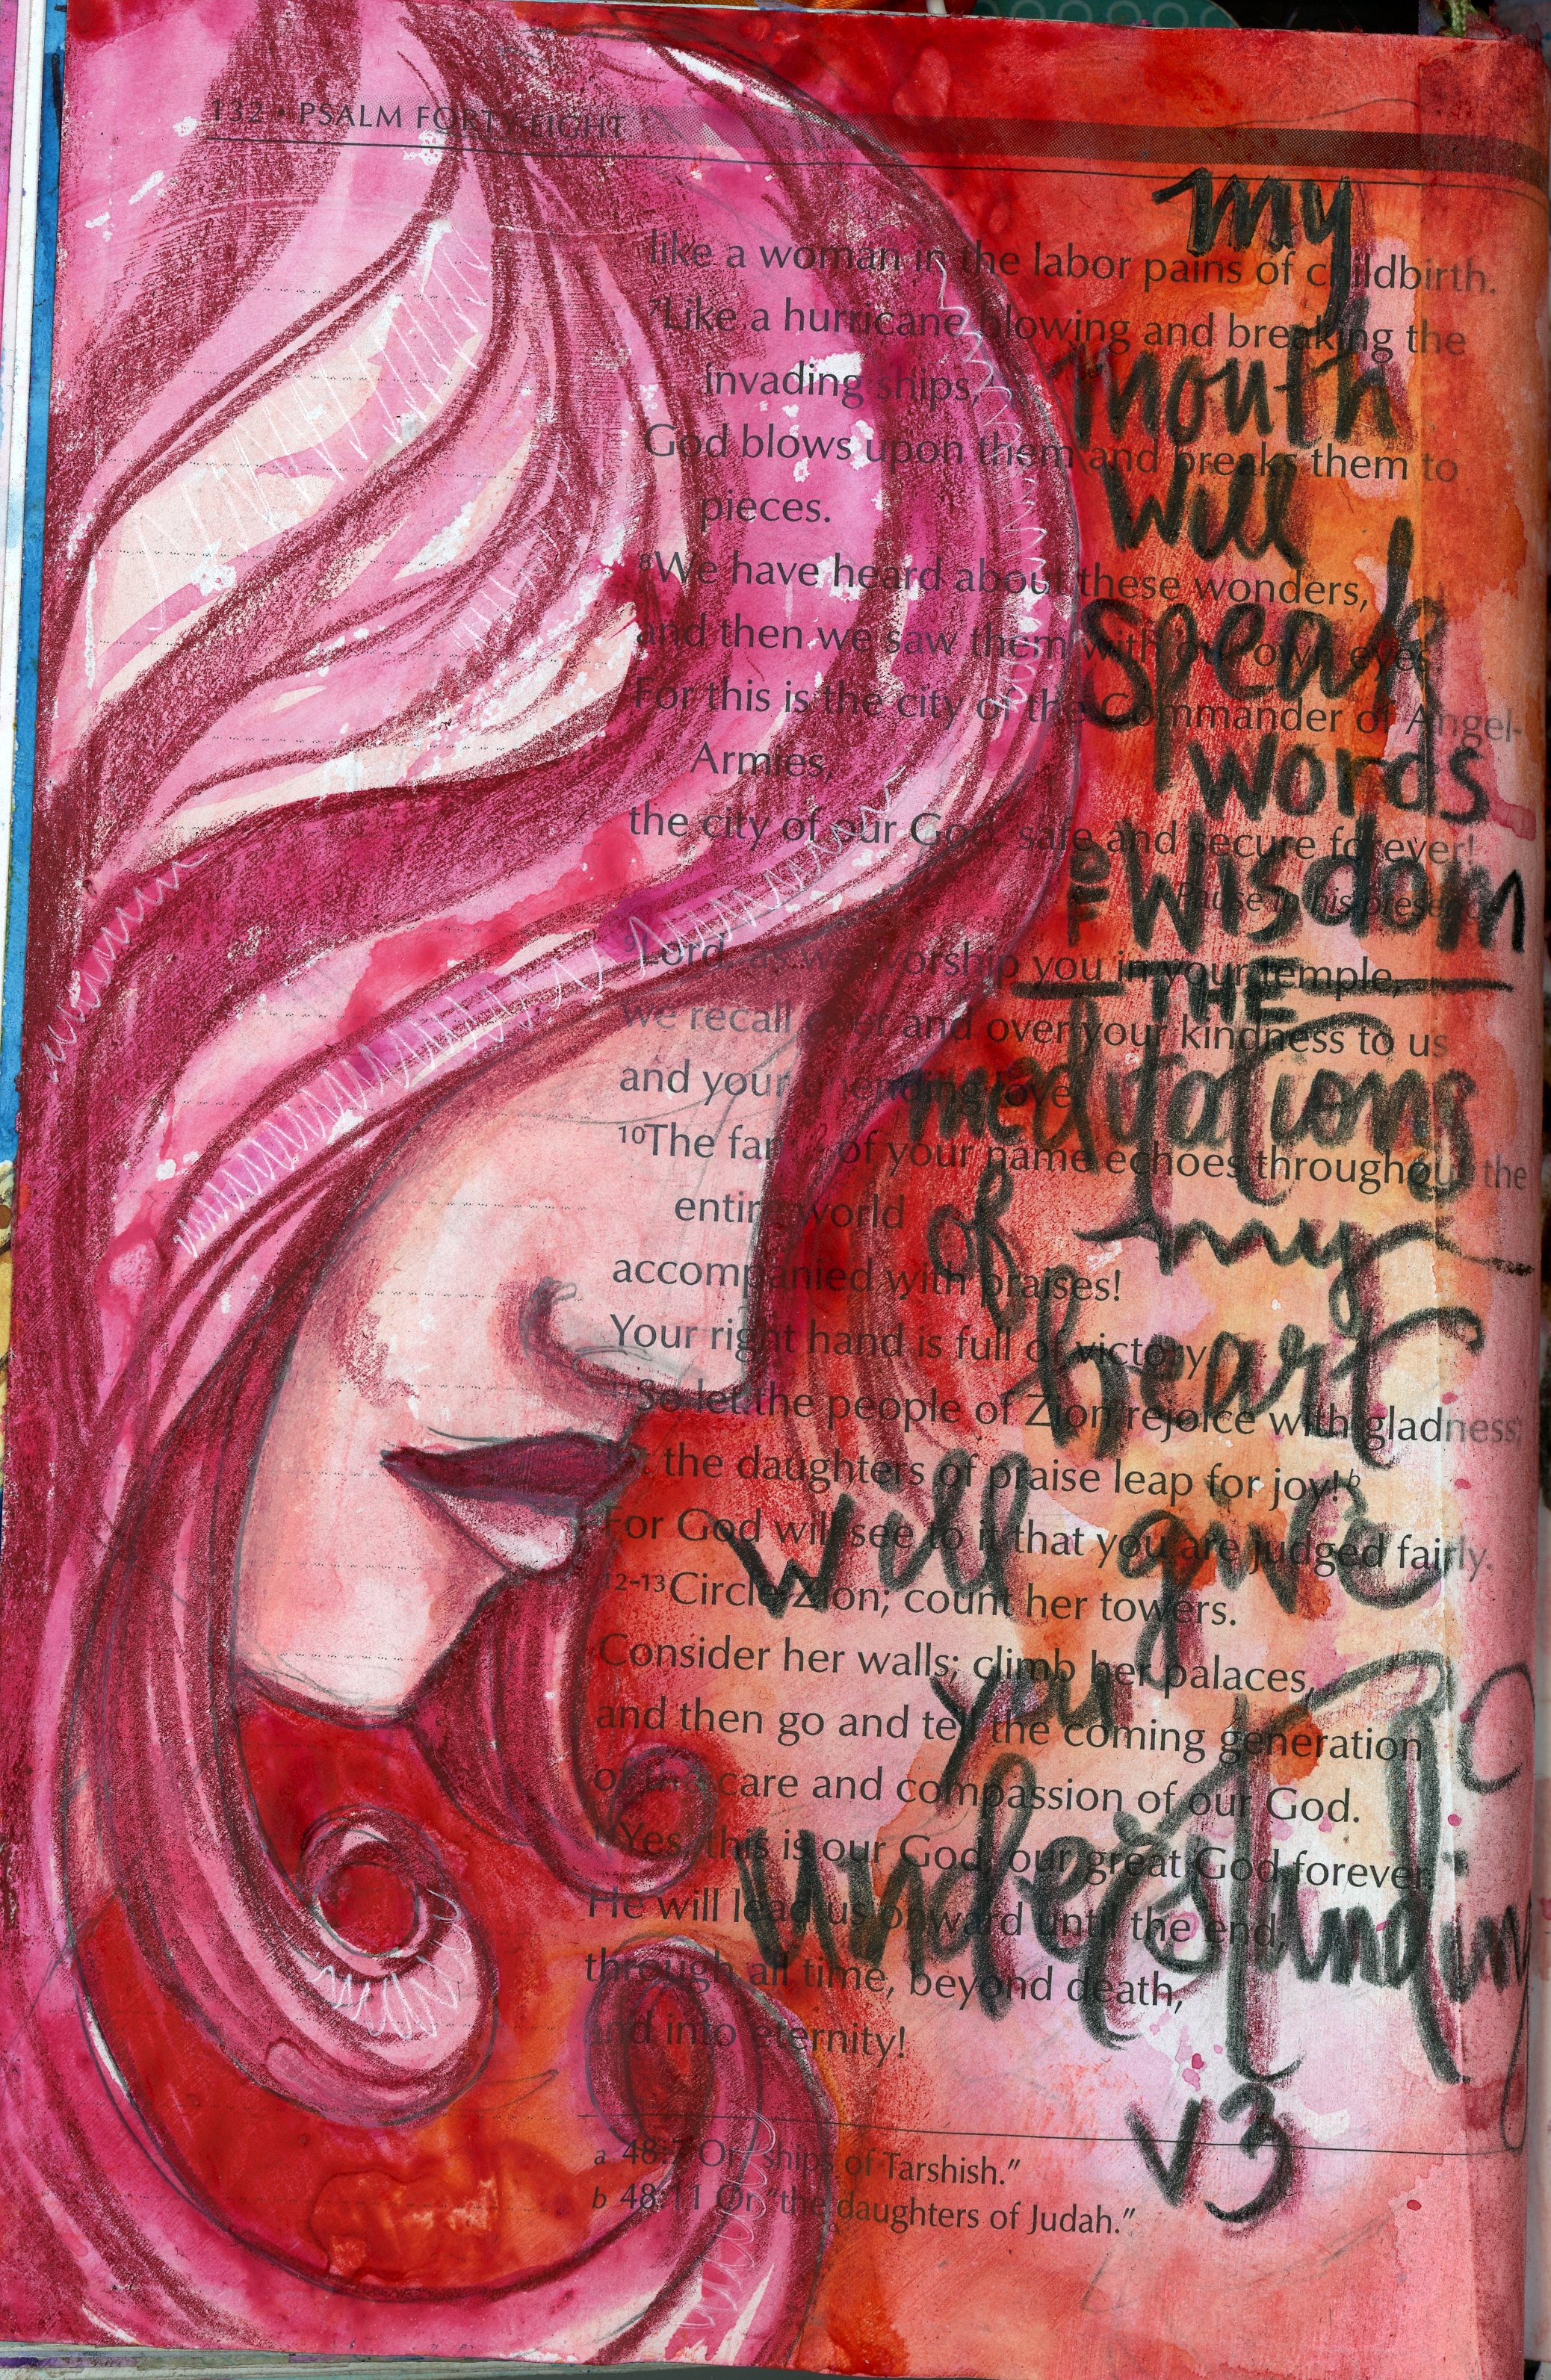 132 • PSALM FORTY-EIGHT
like a woman in the labor pains of childbirth.
7Like a hurricane blowing and breaking the
invading ships,
God blows upon them and breaks them to
pieces.
8We have heard about these wonders,
and then we saw them with our own eyes.
For this is the city of the Commander of Angel-
Armies,
the city of our God, safe and secure forever!
Pause in his presence
9Lord, as we worship you in your temple,
we recall over and over your kindness to us
and your unending love.
10The fame of your name echoes throughout the
entire world
accompanied with praises!
Your right hand is full of victory.
11So let the people of Zion rejoice with gladness;
let the daughters of praise leap for joy!b
For God will see to it that you are judged fairly.
12-13Circle Zion; count her towers.
Consider her walls; climb her palaces,
and then go and tell the coming generation
of the care and compassion of our God.
14Yes, this is our God, our great God forever.
He will lead us onward until the end,
through all time, beyond death,
and into eternity!
a 48:7 Or "ships of Tarshish."
b 48:11 Or "the daughters of Judah."
my
mouth
will
speak
words
of wisdom
THE
meditations
of my
heart
will give
you
understanding
v3